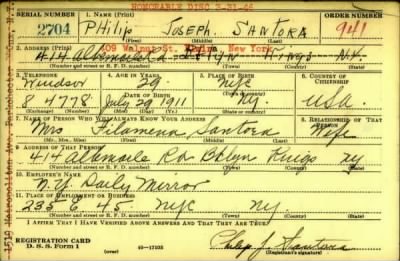 HONORABLE DISC 3-31-46
SERIAL NUMBER
1. NAME (Print)
ORDER NUMBER
2704
PHILIP JOSEPH SANTORA
941
(First) (Middle) (Last)
2. ADDRESS (Print)
409 Walnut St. New York
414 Kings N.Y.
(Number and street or R. F. D. number) (Town) (County) (State)
3. TELEPHONE
4. AGE IN YEARS
5. PLACE OF BIRTH
6. COUNTRY OF CITIZENSHIP
Windsor
29
NYC
DATE OF BIRTH
8 4778
July 29 1911
NY.
USA.
(Exchange) (Number) (Mo.) (Day) (Yr.) (State or country)
7. NAME OF PERSON WHO WILL ALWAYS KNOW YOUR ADDRESS
8. RELATIONSHIP OF THAT PERSON
Mrs Filamena Santora
Wife
(Mr., Mrs., Miss) (First) (Middle) (Last)
9. ADDRESS OF THAT PERSON
414 Rd Bklyn Kings NY
(Number and street or R. F. D. number) (Town) (County) (State)
10. EMPLOYER'S NAME
N.Y. Daily Mirror
11. PLACE OF EMPLOYMENT OR BUSINESS
235 E 45. NYC NY.
(Number and street or R. F. D. number) (Town) (County) (State)
I AFFIRM THAT I HAVE VERIFIED ABOVE ANSWERS AND THAT THEY ARE TRUE.
REGISTRATION CARD
D. S. S. Form 1
Philip J Santora
(Registrant's signature)
1519 Metropolitan Ave.